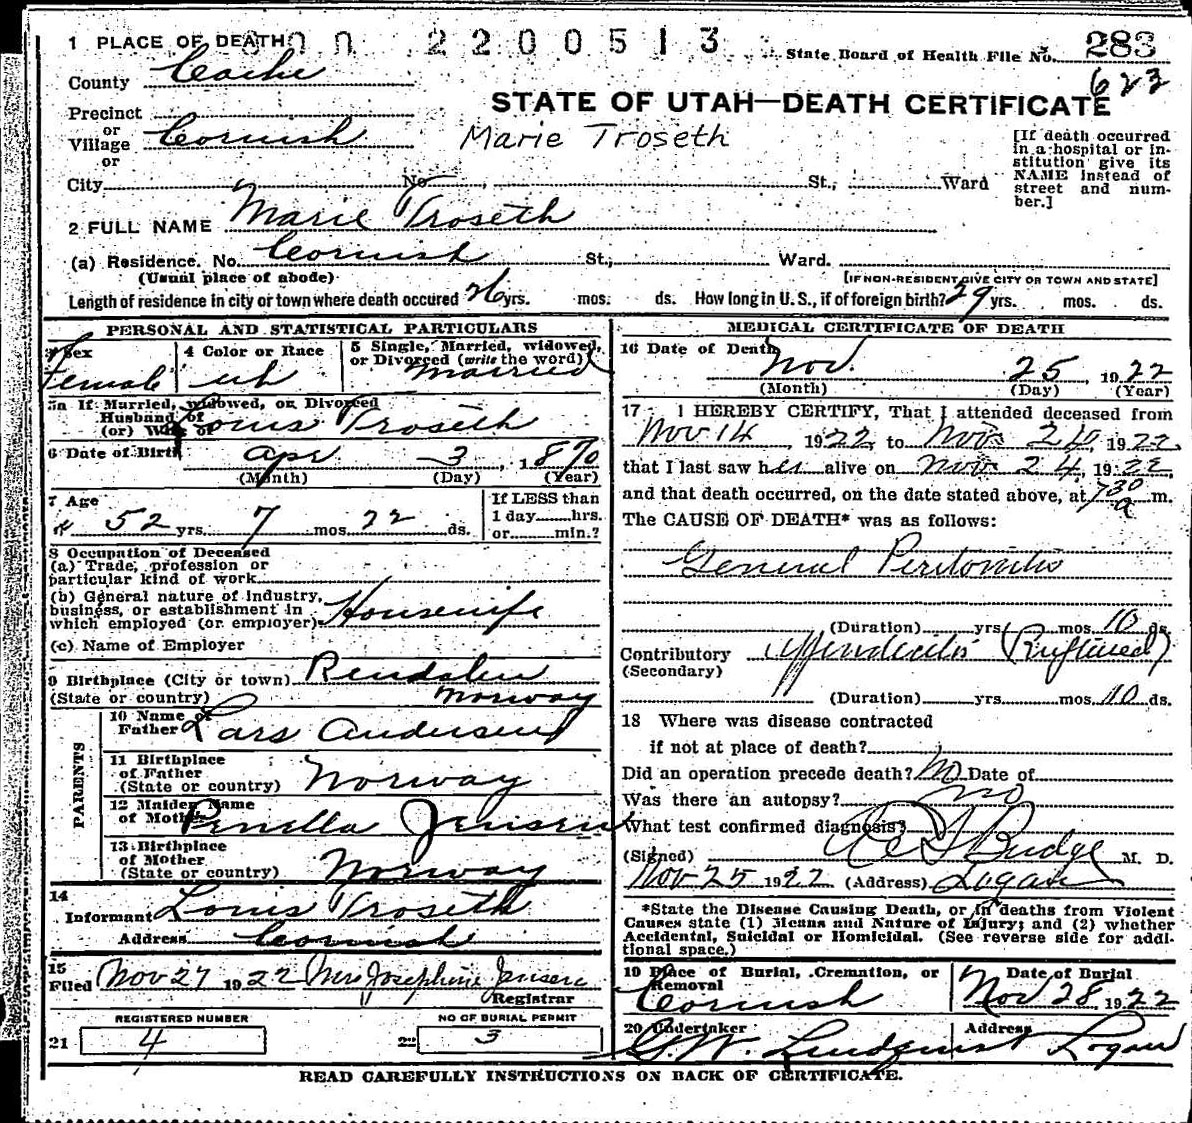 1 PLACE OF DEATH 2200513 State Board of Health File No. 283
County Cache 623
STATE OF UTAH—DEATH CERTIFICATE
Precinct
or
Village Cornish Marie Troseth
or
City No. St., Ward
[If death occurred
in a hospital or in-
stitution give its
NAME instead of
street and num-
ber.]
2 FULL NAME Marie Troseth
(a) Residence. No. Cornish St., Ward.
(Usual place of abode) [IF NON-RESIDENT GIVE CITY OR TOWN AND STATE]
Length of residence in city or town where death occured 26 yrs. mos. ds. How long in U. S., if of foreign birth? 29 yrs. mos. ds.
PERSONAL AND STATISTICAL PARTICULARS
3 Sex
Female
4 Color or Race
wh
5 Single, Married, widowed,
or Divorced (write the word)
Married
5a If Married, widowed, or Divorced
Husband of
(or) Wife of Louis Troseth
6 Date of Birth Apr 3, 1870
(Month) (Day) (Year)
7 Age
52 yrs. 7 mos. 22 ds.
If LESS than
1 day hrs.
or min.?
8 Occupation of Deceased
(a) Trade, profession or
particular kind of work
(b) General nature of Industry,
business, or establishment in
which employed (or employer) Housewife
(c) Name of Employer
9 Birthplace (City or town) Rendalen
(State or country) Norway
PARENTS
10 Name of
Father Lars Andersen
11 Birthplace
of Father
(State or country) Norway
12 Maiden Name
of Mother Penella Jensen
13 Birthplace
of Mother
(State or country) Norway
14
Informant Louis Troseth
Address Cornish
15
Filed Nov 27 1922 Mrs Josephine Jensen
Registrar
REGISTERED NUMBER NO OF BURIAL PERMIT
21 4 22 3
MEDICAL CERTIFICATE OF DEATH
16 Date of Death
Nov. 25, 1922
(Month) (Day) (Year)
17 I HEREBY CERTIFY, That I attended deceased from
Nov 14, 1922, to Nov. 24, 1922,
that I last saw her alive on Nov. 24, 1922,
and that death occurred, on the date stated above, at 730 a m.
The CAUSE OF DEATH* was as follows:
General Peritonitis
(Duration) yrs. mos. 10 ds.
Contributory Appendicitis (Ruptured)
(Secondary)
(Duration) yrs. mos. 10 ds.
18 Where was disease contracted
if not at place of death?
Did an operation precede death? No Date of
Was there an autopsy? no
What test confirmed diagnosis?
(Signed) Budge M. D.
Nov 25 1922 (Address) Logan
*State the Disease Causing Death, or in deaths from Violent
Causes state (1) Means and Nature of Injury; and (2) whether
Accidental, Suicidal or Homicidal. (See reverse side for addi-
tional space.)
19 Place of Burial, Cremation, or
Removal
Cornish
Date of Burial
Nov 28, 1922
20 Undertaker
G. W. Lindquist
Address
Logan
READ CAREFULLY INSTRUCTIONS ON BACK OF CERTIFICATE.